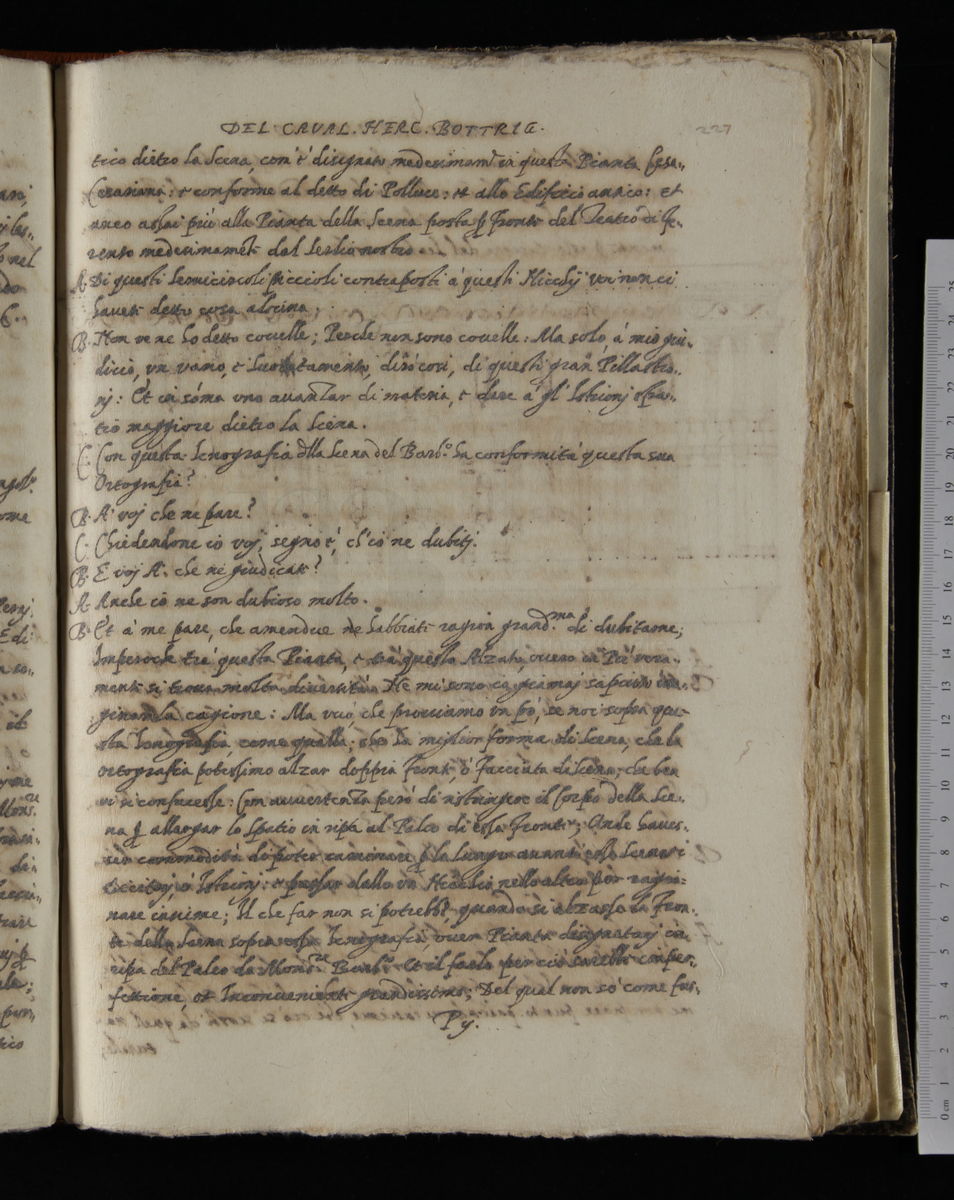 DEL CAVAL. HERC. BOTTRIG. 227
tico dietro la Scena, com'è disegnato medesimamte in questa Pianta Cesa..
Cesariana: è conforme al detto di Polluce: et allo Edificio antico: Et
anco assai più alla Pianta della Scena posta p Fronte del Teatro di Te..
renso medesimamte dal Serlio nostro.
A. Di questi Semicircoli piccioli contraposti à questi Nicchij voi non ci
havete detto cosa alcuna;
B. Non ve ne ho detto covelle; Perche non sono covelle: Ma solo, à mio giu..
dicio, un vano, è tamento, dirò così, di questi gran Pillastro..
nj: Et in sóma uno avanzar di materia, è dare a gl'Istrionj spa..
tio maggiore dietro la Scena.
C. Con questa Icnografia dlla Scena del Barb.o ha conformità questa sua
Ortografia?
B. A' voj che ne pare?
C. Chiedendone io voj, segno è, ch'io ne dubitj.
B. E voj A. che ne giudicate?
A. Anche io ne son dubioso molto.
B. Et à me pare, che amendue ne habbiate ragion grand.ma di dubitarne;
Imperoche trà questa Pianta, è trà questo Alzato, overo in Piè vera..
mente si trova molta diversità. Ne mi sono io giamaj saputo ima..
ginar la cagione: Ma vuò, che proviamo un pò, se noi sopra que..
sta Icnografia come quella, che ha miglior forma di Scena, che la
Ortografia potessimo alzar doppia Fronte, ò Facciata di Scena, che ben
vi si confacesse: Con avvertenza però di ristringere il Corpo della Sce..
na p allargar lo Spatio in ripa al Palco di essa Fronte; Onde haves..
ser commodità di poter caminare p lo lungo avanti essa Scenari
Recitorj ò Istrionj: è passar dallo un Nicchio nello altro per ragio..
nare insieme; Il che far non si potrebbe quando si alzasse la Fron..
te della Scena sopra essa Icnografia over Pianta disegnataj in
ripa del Palco da Mons.re Barb.o Et il farlo perciò sarebbe imper..
fettione, et Inconveniente grandissimo; Del qual non sò come fus..
Pij.